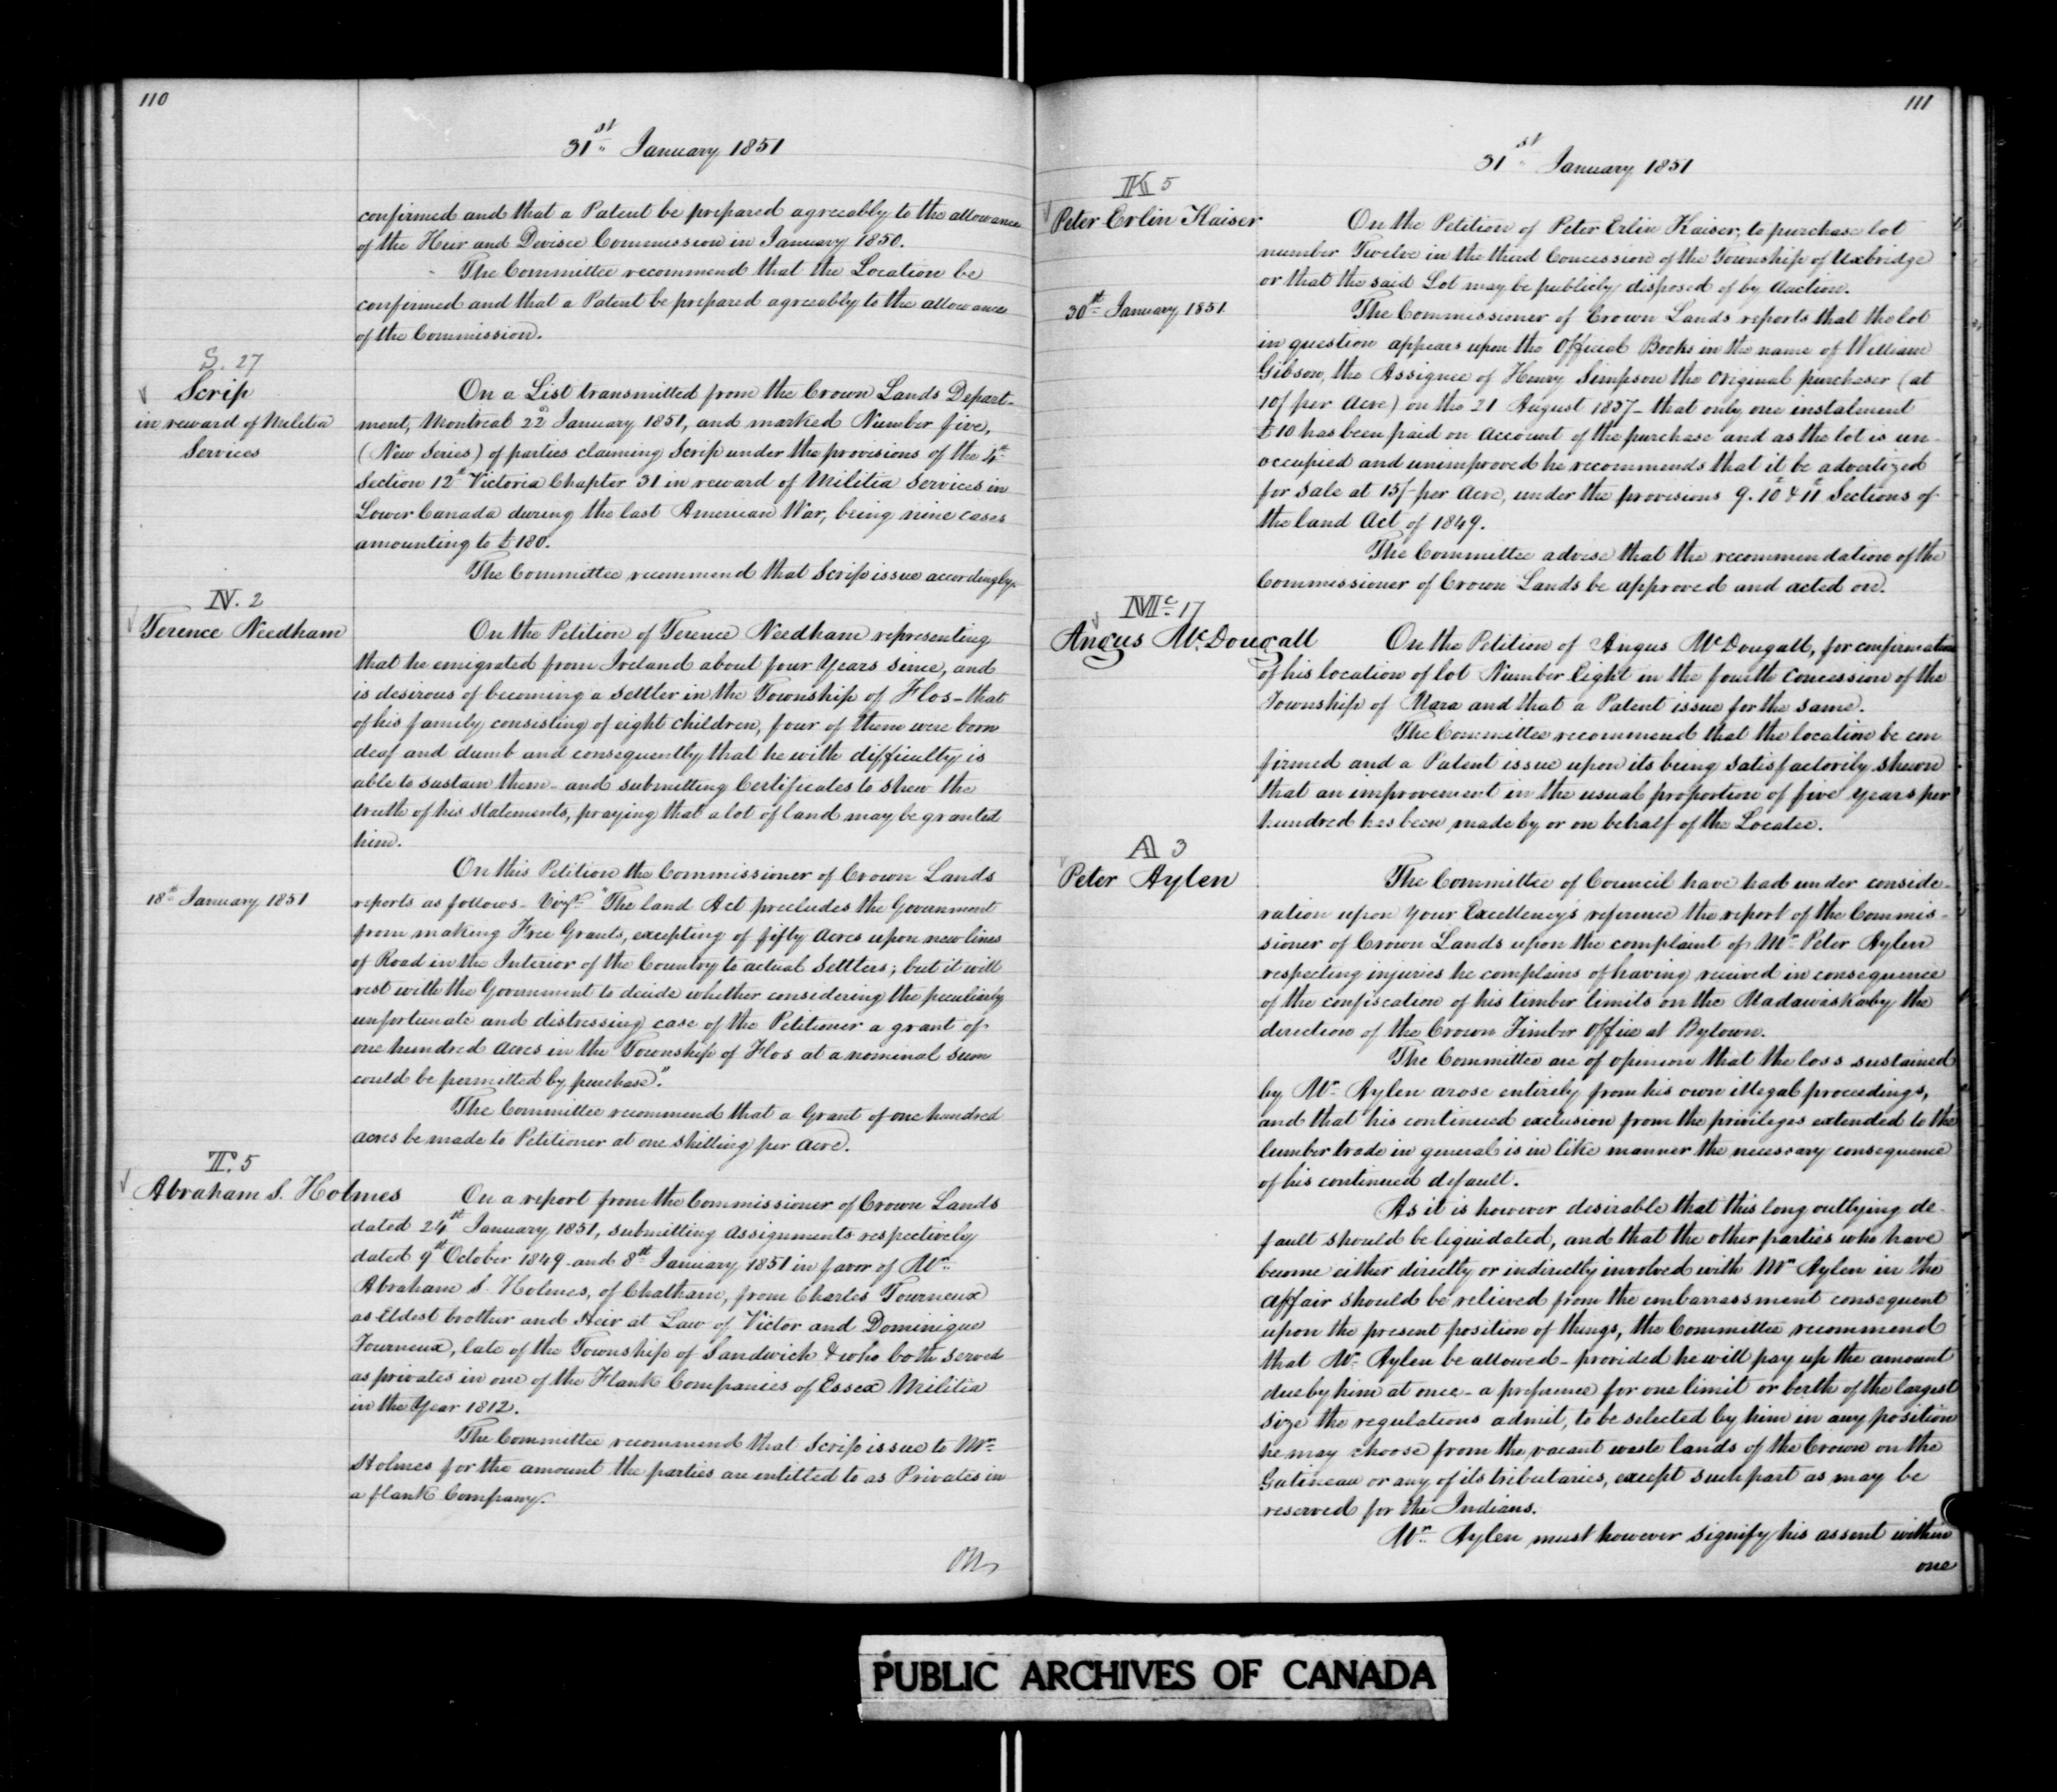 110
31st January 1851
confirmed and that a Patent be prepared agreeably to the allowance
of the Heir and Devisee Commission in January 1850.
The Committee recommend that the Location be
confirmed and that a Patent be prepared agreeably to the allowance
of the Commission.
S. 27
Scrip
in reward of Militia
Services
On a List transmitted from the Crown Lands Depart-
ment, Montreal 22d January 1851, and marked Number five,
(New Series) of parties claiming Scrip under the provisions of the 4th
Section 12th Victoria Chapter 31 in reward of Militia Services in
Lower Canada during the last American War, being nine cases
amounting to £180.
The Committee recommend that Scrip issue accordingly.
N. 2
Terence Needham
On the Petition of Terence Needham representing
that he emigrated from Ireland about four Years since, and
is desirous of becoming a Settler in the Township of Flos - that
of his family consisting of eight children, four of them were born
deaf and dumb and consequently that he with difficulty is
able to sustain them - and submitting Certificates to shew the
truth of his statements, praying that a lot of land may be granted
him.
18th January 1851
On this Petition the Commissioner of Crown Lands
reports as follows - Vizt. "The land Act precludes the Government
from making Free Grants, excepting of fifty Acres upon new lines
of Road in the Interior of the Country to actual Settlers; but it will
rest with the Government to decide whether considering the peculiarly
unfortunate and distressing case of the Petitioner a grant of
one hundred Acres in the Township of Flos at a nominal sum
could be permitted by purchase."
The Committee recommend that a Grant of one hundred
acres be made to Petitioner at one shilling per Acre.
T. 5
Abraham S. Holmes
On a report from the Commissioner of Crown Lands
dated 24th January 1851, submitting Assignments respectively
dated 9th October 1849 and 8th January 1851 in favor of Mr.
Abraham S. Holmes, of Chatham, from Charles Tourneux
as Eldest brother and Heir at Law of Victor and Dominique
Tourneux, late of the Township of Sandwich & who both served
as privates in one of the Flank Companies of Essex Militia
in the Year 1812.
The Committee recommend that Scrip issue to Mr.
Holmes for the amount the parties are entitled to as Privates in
a flank Company.
On
111
31st January 1851
K 5
Peter Erlin Kaiser
On the Petition of Peter Erlin Kaiser, to purchase lot
number Twelve in the third Concession of the Township of Uxbridge
or that the said Lot may be publicly disposed of by Auction.
30th January 1851
The Commissioner of Crown Lands reports that the lot
in question appears upon the Official Books in the name of William
Gibson, the Assignee of Henry Simpson the original purchaser (at
10/ per Acre) on the 21 August 1837 - that only one instalment
£10 has been paid on Account of the purchase and as the lot is un-
occupied and unimproved he recommends that it be advertized
for sale at 15/- per Acre, under the provisions 9. 10th & 11th Sections of
the land Act of 1849.
The Committee advise that the recommendation of the
Commissioner of Crown Lands be approved and acted on.
Mc. 17
Angus McDougall
On the Petition of Angus McDougall, for confirmation
of his location of lot Number Eight in the fourth Concession of the
Township of Mara and that a Patent issue for the same.
The Committee recommend that the location be con
firmed and a Patent issue upon its being satisfactorily shewn
that an improvement in the usual proportion of five years per
hundred has been made by or on behalf of the Locatee.
A 3
Peter Aylen
The Committee of Council have had under conside-
ration upon Your Excellency's reference the report of the Commis-
sioner of Crown Lands upon the complaint of Mr. Peter Aylen
respecting injuries he complains of having received in consequence
of the confiscation of his timber limits on the Madawiska by the
direction of the Crown Timber Office at Bytown.
The Committee are of opinion that the loss sustained
by Mr. Aylen arose entirely from his own illegal proceedings,
and that his continued exclusion from the privileges extended to the
lumber trade in general is in like manner the necessary consequence
of his continued default.
As it is however desirable that this long outlying de-
fault should be liquidated, and that the other parties who have
become either directly or indirectly involved with Mr Aylen in the
affair should be relieved from the embarrassment consequent
upon the present position of things, the Committee recommend
that Mr. Aylen be allowed - provided he will pay up the amount
due by him at once - a preference for one limit or berth of the largest
size the regulations admit, to be selected by him in any position
he may choose from the vacant waste lands of the Crown on the
Gatineau or any of its tributaries, except such part as may be
reserved for the Indians.
Mr. Aylen must however signify his assent within
one
PUBLIC ARCHIVES OF CANADA